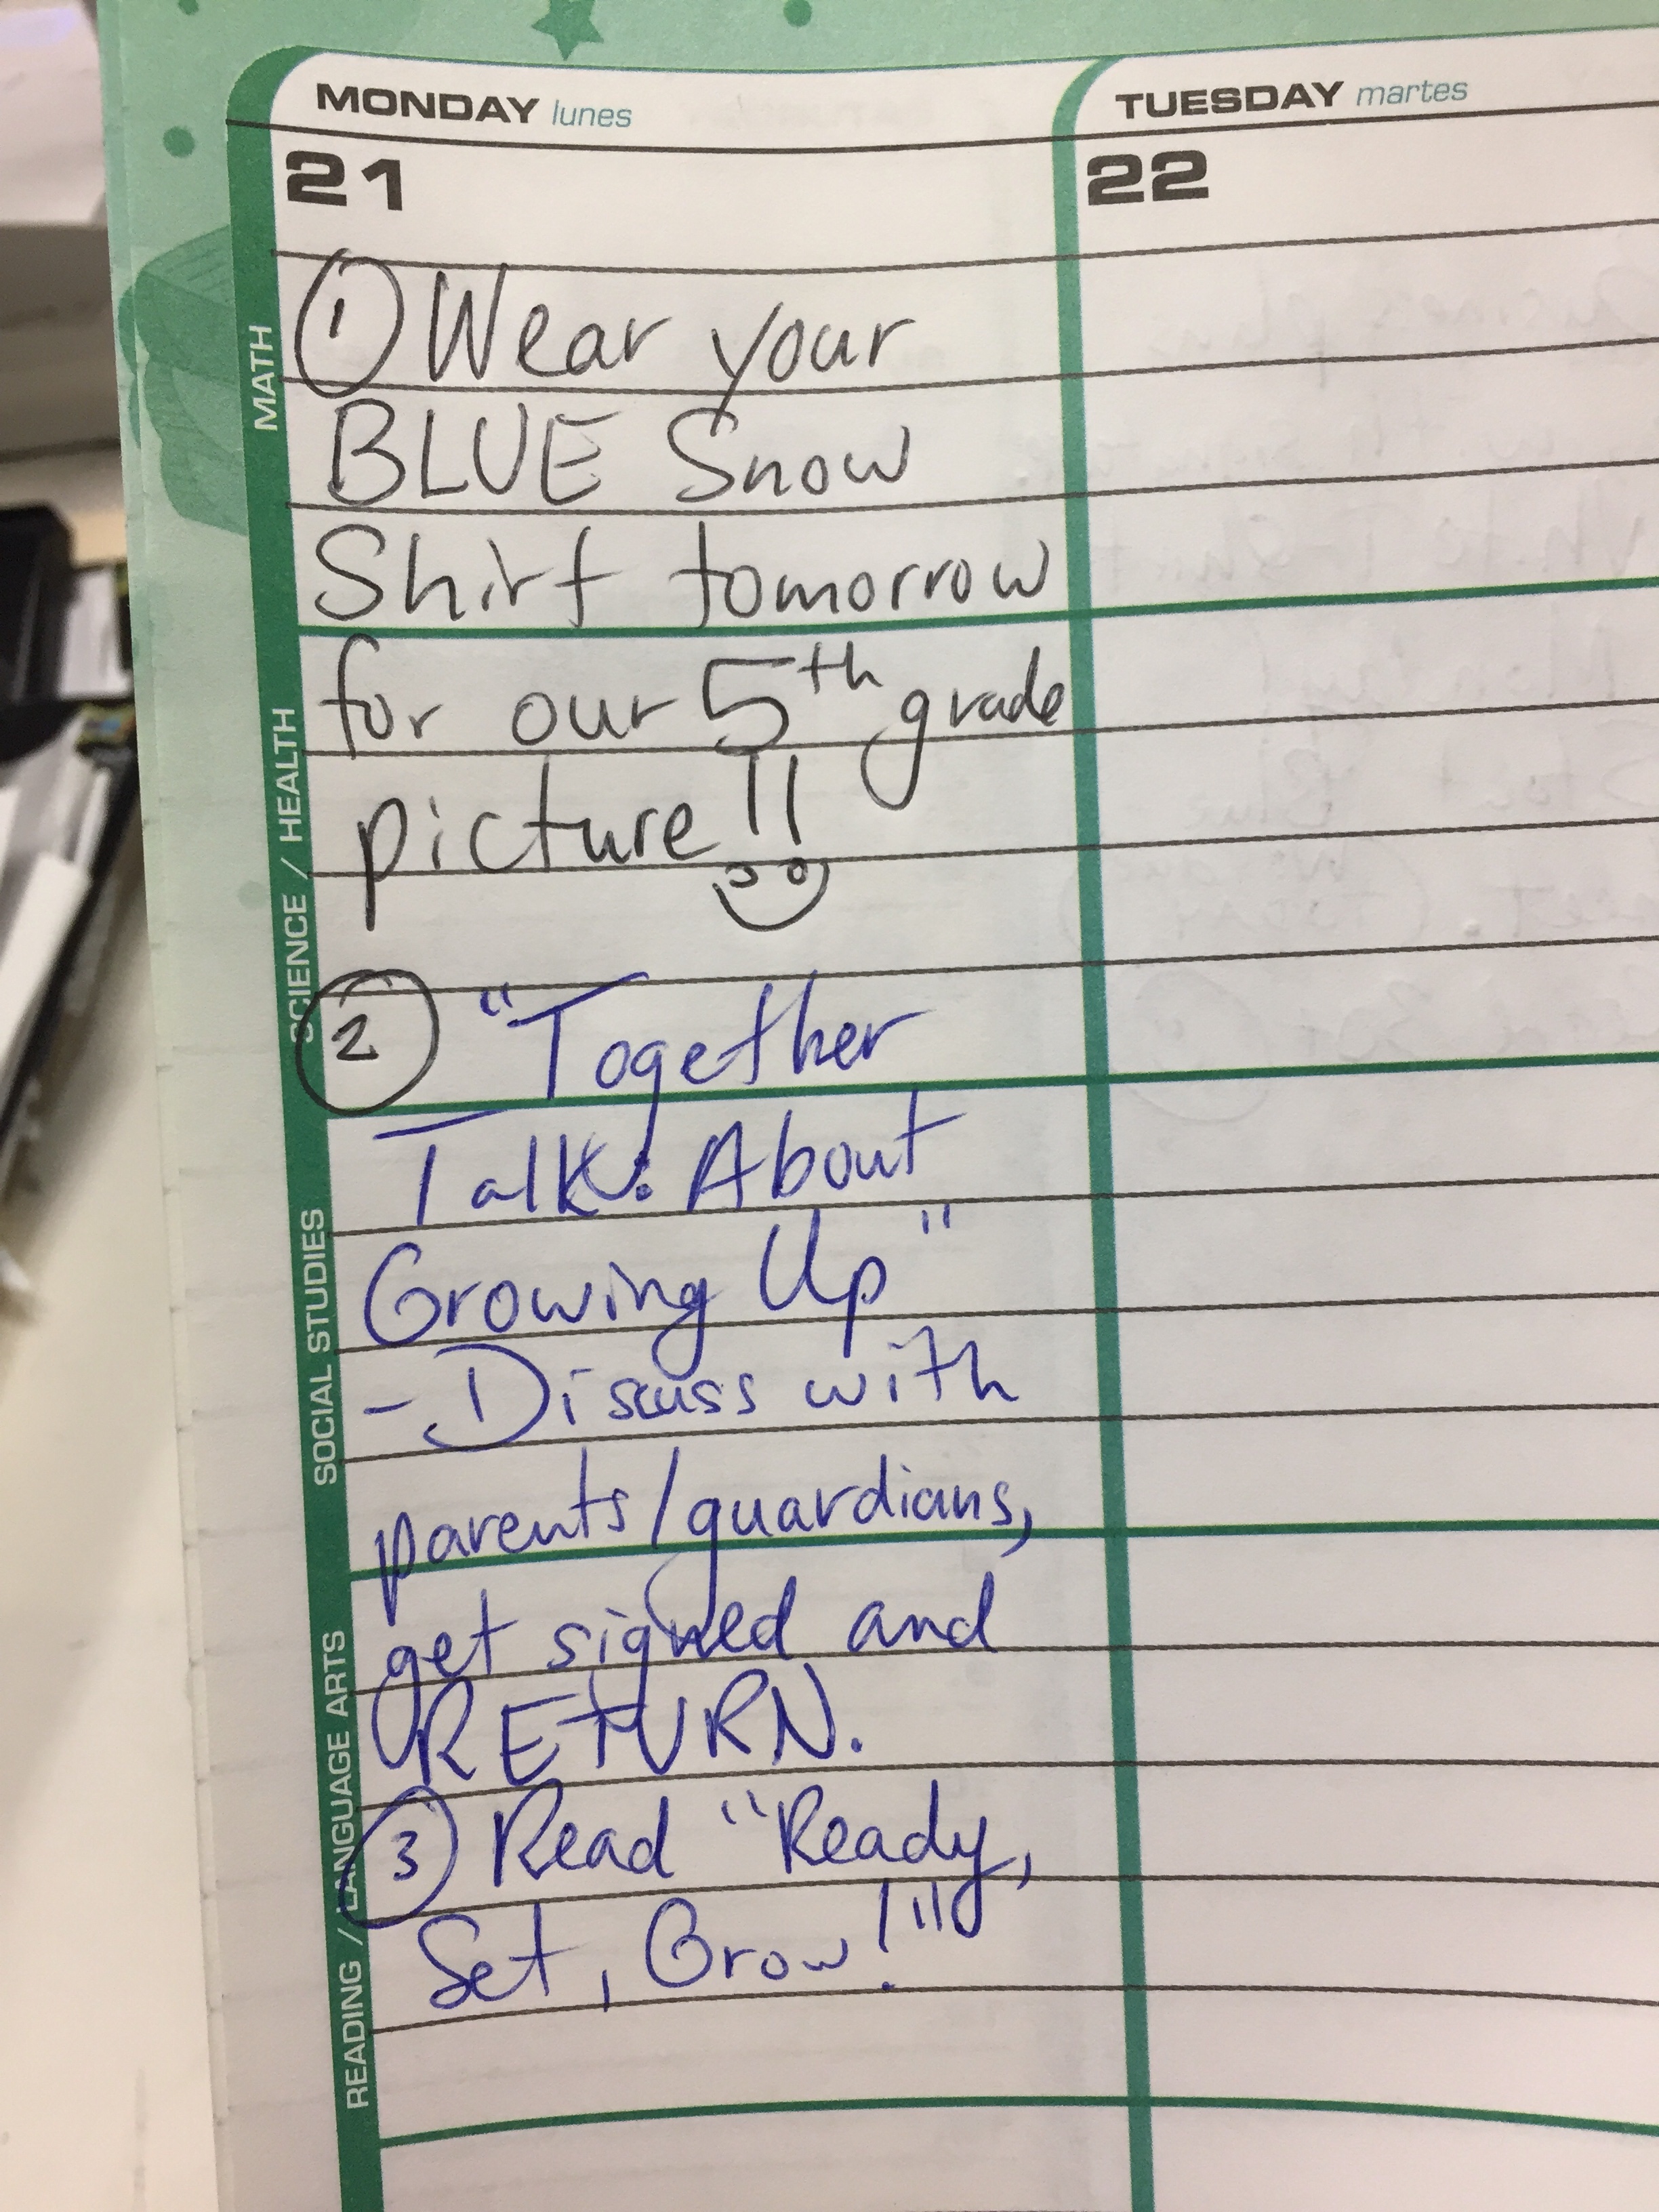 MONDAY lunes
TUESDAY martes
21
22
① Wear your
BLUE Snow
Shirt tomorrow
for our 5th grade
picture!!
② "Together
Talk: About
Growing Up"
- Discuss with
parents/guardians,
get signed and
RETURN.
③ Read "Ready,
Set, Grow!"
MATH
SCIENCE / HEALTH
SOCIAL STUDIES
READING / LANGUAGE ARTS